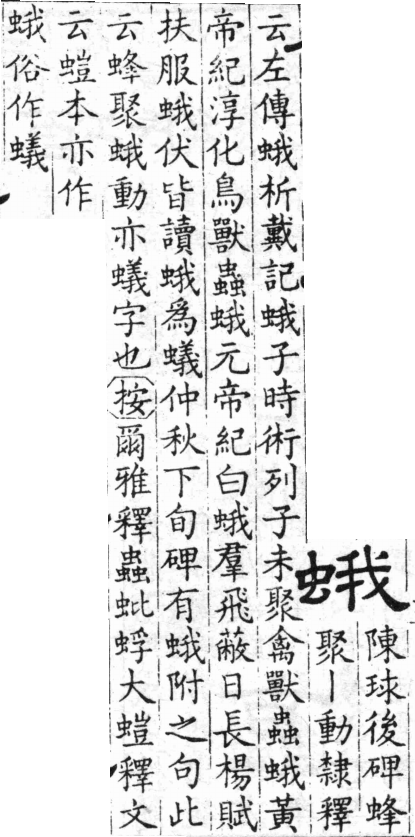 蛾
陳球後碑蜂
聚丨動隸釋
云左傳蛾析戴記蛾子時術列子未聚禽獸蟲蛾黃
帝紀淳化鳥獸蟲蛾元帝紀白蛾羣飛蔽日長楊賦
扶服蛾伏皆讀蛾爲蟻仲秋下旬碑有蛾附之句此
云蜂聚蛾動亦蟻字也按爾雅釋蟲蚍蜉大螘釋文
云螘本亦作
蛾俗作蟻